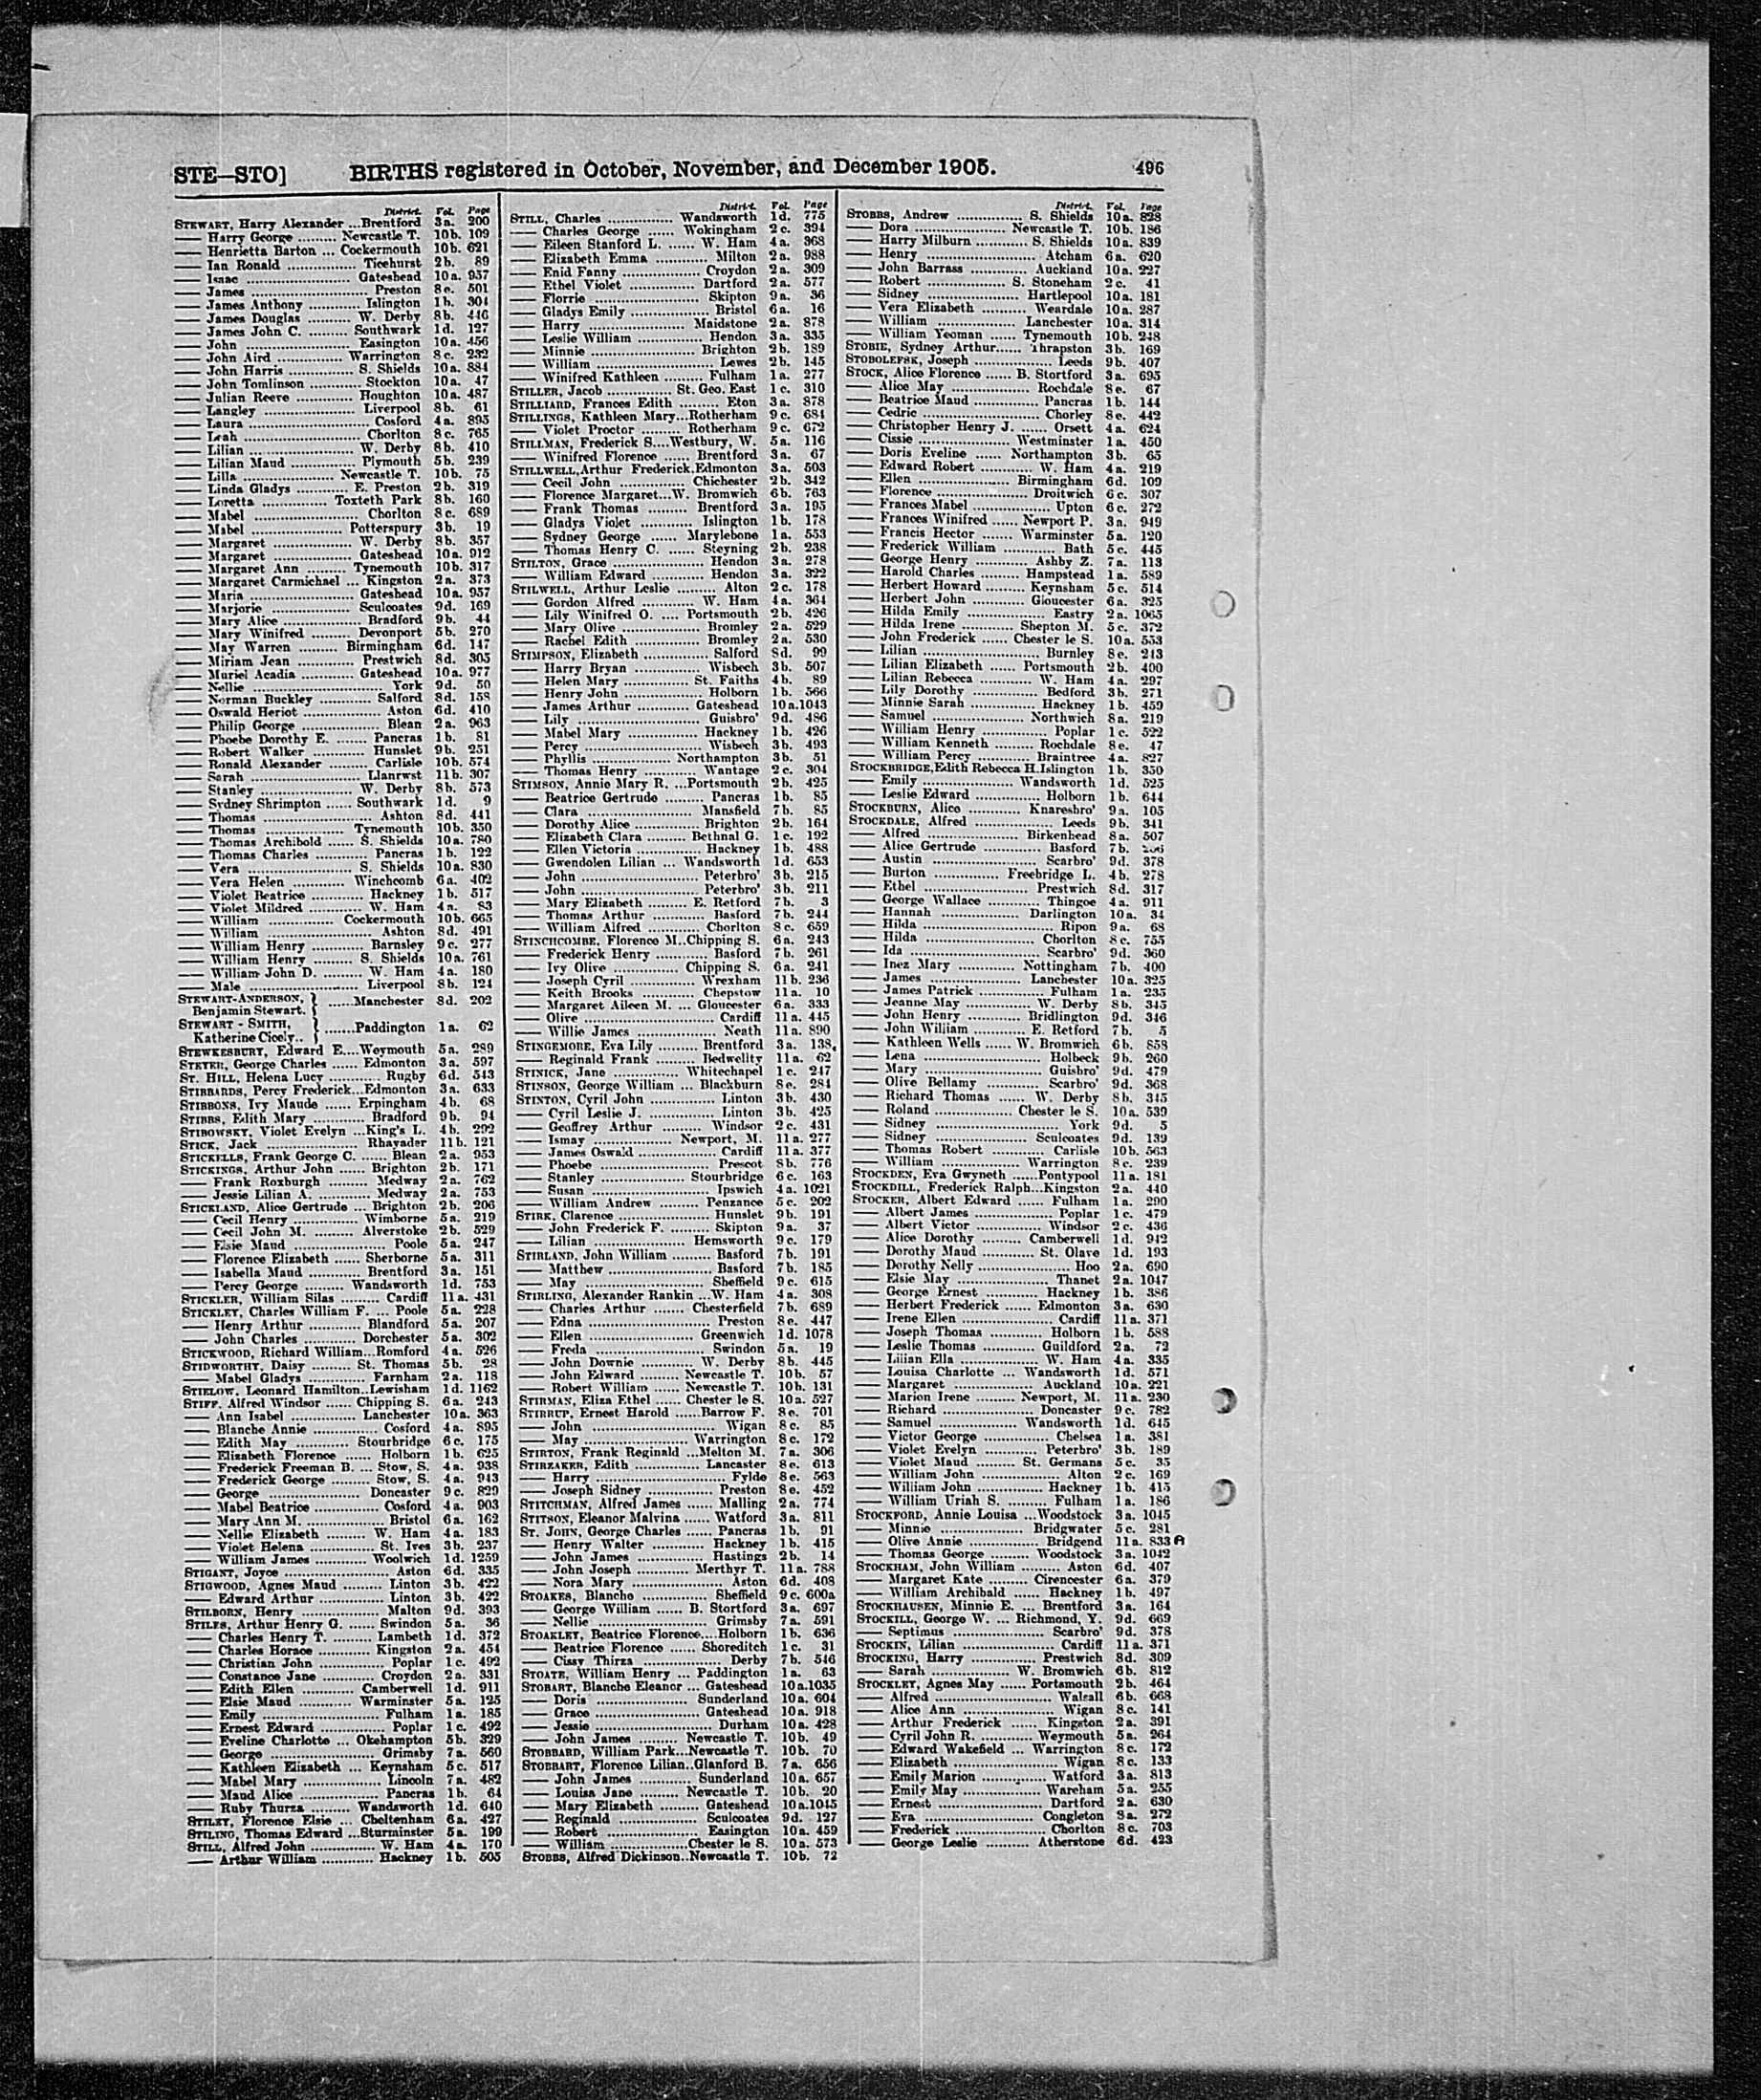 STE—STO] BIRTHS registered in October, November, and December 1905. 496
District. Vol. Page
STEWART, Harry Alexander ...Brentford 3a. 200
—— Harry George ......... Newcastle T. 10b. 109
—— Henrietta Barton ... Cockermouth 10b. 621
—— Ian Ronald ............... Ticehurst 2b. 89
—— Isaac ........................ Gateshead 10a. 957
—— James ........................... Preston 8e. 501
—— James Anthony ............ Islington 1b. 304
—— James Douglas .......... W. Derby 8b. 446
—— James John C. ......... Southwark 1d. 127
—— John ........................... Easington 10a. 456
—— John Aird .............. Warrington 8c. 232
—— John Harris ............. S. Shields 10a. 884
—— John Tomlinson ............ Stockton 10a. 47
—— Julian Reeve ............. Houghton 10a. 487
—— Langley ..................... Liverpool 8b. 61
—— Laura ........................... Cosford 4a. 895
—— Leah ........................... Chorlton 8c. 765
—— Lilian ........................ W. Derby 8b. 410
—— Lilian Maud ............... Plymouth 5b. 239
—— Lilla ..................... Newcastle T. 10b. 75
—— Linda Gladys ........... E. Preston 2b. 319
—— Loretta .............. Toxteth Park 8b. 160
—— Mabel ........................ Chorlton 8c. 689
—— Mabel ..................... Potterspury 3b. 19
—— Margaret .................. W. Derby 8b. 357
—— Margaret .................. Gateshead 10a. 912
—— Margaret Ann ......... Tynemouth 10b. 317
—— Margaret Carmichael ... Kingston 2a. 373
—— Maria ........................ Gateshead 10a. 957
—— Marjorie .................. Sculcoates 9d. 169
—— Mary Alice .................. Bradford 9b. 44
—— Mary Winifred ......... Devonport 5b. 270
—— May Warren ......... Birmingham 6d. 147
—— Miriam Jean ............. Prestwich 8d. 305
—— Muriel Acadia ............ Gateshead 10a. 977
—— Nellie .............................. York 9d. 50
—— Norman Buckley ............ Salford 8d. 158
—— Oswald Heriot .................. Aston 6d. 410
—— Philip George ..................... Blean 2a. 963
—— Phoebe Dorothy E. ....... Pancras 1b. 81
—— Robert Walker ............... Hunslet 9b. 251
—— Ronald Alexander ......... Carlisle 10b. 574
—— Sarah ........................... Llanrwst 11b. 307
—— Stanley ..................... W. Derby 8b. 573
—— Sydney Shrimpton ...... Southwark 1d. 9
—— Thomas ........................ Ashton 8d. 441
—— Thomas ..................... Tynemouth 10b. 350
—— Thomas Archibold ...... S. Shields 10a. 780
—— Thomas Charles ............ Pancras 1b. 122
—— Vera ........................ S. Shields 10a. 830
—— Vera Helen ............ Winchcomb 6a. 402
—— Violet Beatrice ............ Hackney 1b. 517
—— Violet Mildred ............ W. Ham 4a. 83
—— William ............... Cockermouth 10b. 665
—— William ........................... Ashton 8d. 491
—— William Henry ............ Barnsley 9c. 277
—— William Henry ......... S. Shields 10a. 761
—— William John D. ......... W. Ham 4a. 180
—— Male ........................... Liverpool 8b. 124
STEWART-ANDERSON, } ......Manchester 8d. 202
Benjamin Stewart.
STEWART - SMITH, } .......Paddington 1a. 62
Katherine Cicely..
STEWKESBURY, Edward E....Weymouth 5a. 289
STEYER, George Charles ...... Edmonton 3a. 597
ST. HILL, Helena Lucy ............ Rugby 6d. 543
STIBBARDS, Percy Frederick...Edmonton 3a. 633
STIBBONS, Ivy Maude ...... Erpingham 4b. 68
STIBBS, Edith Mary ............ Bradford 9b. 94
STIBOWSKY, Violet Evelyn ...King's L. 4b. 292
STICK, Jack ........................ Rhayader 11b. 121
STICKELLS, Frank George C. ...... Blean 2a. 953
STICKINGS, Arthur John ...... Brighton 2b. 171
—— Frank Roxburgh ......... Medway 2a. 762
—— Jessie Lilian A. ............ Medway 2a. 753
STICKLAND, Alice Gertrude ... Brighton 2b. 206
—— Cecil Henry ............... Wimborne 5a. 219
—— Cecil John M. ......... Alverstoke 2b. 529
—— Elsie Maud ..................... Poole 5a. 247
—— Florence Elizabeth ...... Sherborne 5a. 311
—— Isabella Maud ............ Brentford 3a. 151
—— Percy George ......... Wandsworth 1d. 753
STICKLER, William Silas ......... Cardiff 11a. 431
STICKLEY, Charles William F. ... Poole 5a. 228
—— Henry Arthur ............ Blandford 5a. 207
—— John Charles ............ Dorchester 5a. 302
STICKWOOD, Richard William...Romford 4a. 526
STIDWORTHY, Daisy ......... St. Thomas 5b. 28
—— Mabel Gladys ............... Farnham 2a. 118
STIELOW, Leonard Hamilton..Lewisham 1d. 1162
STIFF, Alfred Windsor ...... Chipping S. 6a. 243
—— Ann Isabel ............... Lanchester 10a. 363
—— Blanche Annie ............... Cosford 4a. 895
—— Edith May ............ Stourbridge 6c. 175
—— Elizabeth Florence ...... Holborn 1b. 625
—— Frederick Freeman B. ... Stow, S. 4a. 938
—— Frederick George ......... Stow, S. 4a. 943
—— George ........................ Doncaster 9c. 829
—— Mabel Beatrice ............... Cosford 4a. 903
—— Mary Ann M. .................. Bristol 6a. 162
—— Nellie Elizabeth ......... W. Ham 4a. 183
—— Violet Helena ............... St. Ives 3b. 237
—— William James ............ Woolwich 1d. 1259
STIGANT, Joyce ........................ Aston 6d. 335
STIGWOOD, Agnes Maud ......... Linton 3b. 422
—— Edward Arthur ............... Linton 3b. 422
STILBORN, Henry .................. Malton 9d. 393
STILES, Arthur Henry G. ...... Swindon 5a. 36
—— Charles Henry T. ......... Lambeth 1d. 372
—— Charles Horace ............ Kingston 2a. 454
—— Christian John ............... Poplar 1c. 492
—— Constance Jane ............ Croydon 2a. 331
—— Edith Ellen ............ Camberwell 1d. 911
—— Elsie Maud ............ Warminster 5a. 125
—— Emily ........................... Fulham 1a. 185
—— Ernest Edward ............... Poplar 1c. 492
—— Eveline Charlotte ... Okehampton 5b. 329
—— George ........................... Grimsby 7a. 560
—— Kathleen Elizabeth ... Keynsham 5c. 517
—— Mabel Mary .................. Lincoln 7a. 482
—— Maud Alice .................. Pancras 1b. 64
—— Ruby Thurza ......... Wandsworth 1d. 640
STILEY, Florence Elsie ... Cheltenham 6a. 427
STILING, Thomas Edward ...Sturminster 5a. 199
STILL, Alfred John ............... W. Ham 4a. 170
—— Arthur William ............ Hackney 1b. 505
District. Vol. Page
STILL, Charles ............... Wandsworth 1d. 775
—— Charles George ...... Wokingham 2c. 394
—— Eileen Stanford L. ...... W. Ham 4a. 368
—— Elizabeth Emma ............ Milton 2a. 988
—— Enid Fanny .................. Croydon 2a. 309
—— Ethel Violet ............... Dartford 2a. 577
—— Florrie ........................ Skipton 9a. 36
—— Gladys Emily .................. Bristol 6a. 16
—— Harry ..................... Maidstone 2a. 878
—— Leslie William ............... Hendon 3a. 335
—— Minnie ........................ Brighton 2b. 189
—— William ........................... Lewes 2b. 145
—— Winifred Kathleen ......... Fulham 1a. 277
STILLER, Jacob ............... St. Geo. East 1c. 310
STILLIARD, Frances Edith ......... Eton 3a. 878
STILLINGS, Kathleen Mary...Rotherham 9c. 684
—— Violet Proctor ......... Rotherham 9c. 672
STILLMAN, Frederick S....Westbury, W. 5a. 116
—— Winifred Florence ...... Brentford 3a. 67
STILLWELL, Arthur Frederick.Edmonton 3a. 503
—— Cecil John ............... Chichester 2b. 342
—— Florence Margaret...W. Bromwich 6b. 763
—— Frank Thomas ......... Brentford 3a. 195
—— Gladys Violet ............ Islington 1b. 178
—— Sydney George ...... Marylebone 1a. 553
—— Thomas Henry C. ...... Steyning 2b. 238
STILTON, Grace ..................... Hendon 3a. 278
—— William Edward ............ Hendon 3a. 322
STILWELL, Arthur Leslie ......... Alton 2c. 178
—— Gordon Alfred ............ W. Ham 4a. 364
—— Lily Winifred O. .... Portsmouth 2b. 426
—— Mary Olive .................. Bromley 2a. 529
—— Rachel Edith ............... Bromley 2a. 530
STIMPSON, Elizabeth ............... Salford 8d. 99
—— Harry Bryan ............... Wisbech 3b. 507
—— Helen Mary ............... St. Faiths 4b. 89
—— Henry John .................. Holborn 1b. 566
—— James Arthur ............ Gateshead 10a. 1043
—— Lily ........................... Guisbro' 9d. 486
—— Mabel Mary ............... Hackney 1b. 426
—— Percy ........................... Wisbech 3b. 493
—— Phyllis .................. Northampton 3b. 51
—— Thomas Henry ............ Wantage 2c. 304
STIMSON, Annie Mary R. ...Portsmouth 2b. 425
—— Beatrice Gertrude ......... Pancras 1b. 85
—— Clara ........................ Mansfield 7b. 85
—— Dorothy Alice ............... Brighton 2b. 164
—— Elizabeth Clara ......... Bethnal G. 1c. 192
—— Ellen Victoria ............... Hackney 1b. 488
—— Gwendolen Lilian ... Wandsworth 1d. 653
—— John ........................... Peterbro' 3b. 215
—— John ........................... Peterbro' 3b. 211
—— Mary Elizabeth ......... E. Retford 7b. 3
—— Thomas Arthur ............ Basford 7b. 244
—— William Alfred ............ Chorlton 8c. 659
STINCHCOMBE, Florence M..Chipping S. 6a. 243
—— Frederick Henry ............ Basford 7b. 261
—— Ivy Olive ............... Chipping S. 6a. 241
—— Joseph Cyril ............... Wrexham 11b. 236
—— Keith Brooks ............ Chepstow 11a. 10
—— Margaret Aileen M. ... Gloucester 6a. 333
—— Olive ........................... Cardiff 11a. 445
—— Willie James .................. Neath 11a. 890
STINGEMORE, Eva Lily ......... Brentford 3a. 138
—— Reginald Frank ......... Bedwellty 11a. 62
STINICK, Jane ............... Whitechapel 1c. 247
STINSON, George William ... Blackburn 8e. 284
STINTON, Cyril John ............... Linton 3b. 430
—— Cyril Leslie J. ............... Linton 3b. 425
—— Geoffrey Arthur ......... Windsor 2c. 431
—— Ismay .................. Newport, M. 11a. 277
—— James Oswald .................. Cardiff 11a. 377
—— Phoebe ........................ Prescot 8b. 776
—— Stanley .................. Stourbridge 6c. 163
—— Susan ........................... Ipswich 4a. 1021
—— William Andrew ......... Penzance 5c. 202
STIRK, Clarence ..................... Hunslet 9b. 191
—— John Frederick F. ......... Skipton 9a. 37
—— Lilian ..................... Hemsworth 9c. 179
STIRLAND, John William ......... Basford 7b. 191
—— Matthew ..................... Basford 7b. 185
—— May ........................... Sheffield 9c. 615
STIRLING, Alexander Rankin ...W. Ham 4a. 308
—— Charles Arthur ....... Chesterfield 7b. 689
—— Edna ........................... Preston 8e. 447
—— Ellen ........................ Greenwich 1d. 1078
—— Freda ........................... Swindon 5a. 19
—— John Downie ............ W. Derby 8b. 445
—— John Edward ......... Newcastle T. 10b. 57
—— Robert William ...... Newcastle T. 10b. 131
STIRMAN, Eliza Ethel ...... Chester le S. 10a. 527
STIRRUP, Ernest Harold ......Barrow F. 8e. 701
—— John ........................... Wigan 8c. 85
—— May ........................ Warrington 8c. 172
STIRTON, Frank Reginald ...Melton M. 7a. 306
STIRZAKER, Edith ............... Lancaster 8e. 613
—— Harry ........................... Fylde 8e. 563
—— Joseph Sidney ............... Preston 8e. 452
STITCHMAN, Alfred James ...... Malling 2a. 774
STITSON, Eleanor Malvina ...... Watford 3a. 811
ST. JOHN, George Charles ...... Pancras 1b. 91
—— Henry Walter ............ Hackney 1b. 415
—— John James ............... Hastings 2b. 14
—— John Joseph ............ Merthyr T. 11a. 788
—— Nora Mary ..................... Aston 6d. 408
STOAKES, Blanche ............... Sheffield 9c. 600a
—— George William ...... B. Stortford 3a. 697
—— Nellie ........................... Grimsby 7a. 591
STOAKLEY, Beatrice Florence....Holborn 1b. 636
—— Beatrice Florence ...... Shoreditch 1c. 31
—— Cissy Thirza .................. Derby 7b. 546
STOATE, William Henry ... Paddington 1a. 63
STOBART, Blanche Eleanor ... Gateshead 10a. 1035
—— Doris ..................... Sunderland 10a. 604
—— Grace ........................ Gateshead 10a. 918
—— Jessie ........................... Durham 10a. 428
—— John James ......... Newcastle T. 10b. 49
STOBBARD, William Park...Newcastle T. 10b. 70
STOBBART, Florence Lilian..Glanford B. 7a. 656
—— John James ............ Sunderland 10a. 657
—— Louisa Jane ......... Newcastle T. 10b. 20
—— Mary Elizabeth ......... Gateshead 10a. 1045
—— Reginald .................. Sculcoates 9d. 127
—— Robert ..................... Easington 10a. 459
—— William ..................Chester le S. 10a. 573
STOBBS, Alfred Dickinson..Newcastle T. 10b. 72
District. Vol. Page
STOBBS, Andrew ............... S. Shields 10a. 828
—— Dora ..................... Newcastle T. 10b. 186
—— Harry Milburn ............ S. Shields 10a. 839
—— Henry ........................... Atcham 6a. 620
—— John Barrass ............... Auckland 10a. 227
—— Robert .................. S. Stoneham 2c. 41
—— Sidney ..................... Hartlepool 10a. 181
—— Vera Elizabeth .......... Weardale 10a. 287
—— William .................. Lanchester 10a. 314
—— William Yeoman ...... Tynemouth 10b. 248
STOBIE, Sydney Arthur...... Thrapston 3b. 169
STOBOLEFSK, Joseph .................. Leeds 9b. 407
STOCK, Alice Florence ...... B. Stortford 3a. 695
—— Alice May .................. Rochdale 8e. 67
—— Beatrice Maud ............... Pancras 1b. 144
—— Cedric ........................... Chorley 8e. 442
—— Christopher Henry J. ...... Orsett 4a. 624
—— Cissie ..................... Westminster 1a. 450
—— Doris Eveline ...... Northampton 3b. 65
—— Edward Robert ............ W. Ham 4a. 219
—— Ellen ........................ Birmingham 6d. 109
—— Florence ..................... Droitwich 6c. 307
—— Frances Mabel .................. Upton 6c. 272
—— Frances Winifred ...... Newport P. 3a. 949
—— Francis Hector ....... Warminster 5a. 120
—— Frederick William ............ Bath 5c. 445
—— George Henry ............ Ashby Z. 7a. 113
—— Harold Charles ......... Hampstead 1a. 589
—— Herbert Howard ......... Keynsham 5c. 514
—— Herbert John ............ Gloucester 6a. 325
—— Hilda Emily .................. Eastry 2a. 1065
—— Hilda Irene ............ Shepton M. 5c. 372
—— John Frederick ...... Chester le S. 10a. 553
—— Lilian ........................... Burnley 8e. 243
—— Lilian Elizabeth ...... Portsmouth 2b. 400
—— Lilian Rebecca ............ W. Ham 4a. 297
—— Lily Dorothy ............... Bedford 3b. 271
—— Minnie Sarah ............... Hackney 1b. 459
—— Samuel ..................... Northwich 8a. 219
—— William Henry ............... Poplar 1c. 522
—— William Kenneth ......... Rochdale 8e. 47
—— William Percy ............ Braintree 4a. 827
STOCKBRIDGE, Edith Rebecca H.Islington 1b. 350
—— Emily ..................... Wandsworth 1d. 525
—— Leslie Edward ............... Holborn 1b. 644
STOCKBURN, Alice ............ Knaresbro' 9a. 105
STOCKDALE, Alfred ..................... Leeds 9b. 341
—— Alfred ..................... Birkenhead 8a. 507
—— Alice Gertrude ............... Basford 7b.
—— Austin ........................ Scarbro' 9d. 378
—— Burton ............... Freebridge L. 4b. 278
—— Ethel ........................ Prestwich 8d. 317
—— George Wallace ............ Thingoe 4a. 911
—— Hannah .................. Darlington 10a. 34
—— Hilda ........................... Ripon 9a. 68
—— Hilda ........................ Chorlton 8c. 755
—— Ida ........................... Scarbro' 9d. 360
—— Inez Mary ............... Nottingham 7b. 400
—— James ..................... Lanchester 10a. 325
—— James Patrick ............... Fulham 1a. 235
—— Jeanne May ............... W. Derby 8b. 345
—— John Henry ............ Bridlington 9d. 346
—— John William ............ E. Retford 7b. 5
—— Kathleen Wells ...... W. Bromwich 6b. 858
—— Lena ........................... Holbeck 9b. 260
—— Mary ........................... Guisbro' 9d. 479
—— Olive Bellamy ............ Scarbro' 9d. 368
—— Richard Thomas ...... W. Derby 8b. 345
—— Roland .................. Chester le S. 10a. 539
—— Sidney ........................... York 9d. 5
—— Sidney ..................... Sculcoates 9d. 139
—— Thomas Robert ............ Carlisle 10b. 563
—— William .................. Warrington 8c. 239
STOCKDEN, Eva Gwyneth ......Pontypool 11a. 181
STOCKDILL, Frederick Ralph...Kingston 2a. 440
STOCKER, Albert Edward ...... Fulham 1a. 290
—— Albert James .................. Poplar 1c. 479
—— Albert Victor ............... Windsor 2c. 436
—— Alice Dorothy ......... Camberwell 1d. 942
—— Dorothy Maud ............ St. Olave 1d. 193
—— Dorothy Nelly .................. Hoo 2a. 690
—— Elsie May ..................... Thanet 2a. 1047
—— George Ernest ............ Hackney 1b. 386
—— Herbert Frederick ...... Edmonton 3a. 630
—— Irene Ellen ..................... Cardiff 11a. 371
—— Joseph Thomas ............ Holborn 1b. 588
—— Leslie Thomas ............ Guildford 2a. 72
—— Lilian Ella .................. W. Ham 4a. 335
—— Louisa Charlotte ... Wandsworth 1d. 571
—— Margaret .................. Auckland 10a. 221
—— Marion Irene ......... Newport, M. 11a. 230
—— Richard ..................... Doncaster 9c. 782
—— Samuel .................. Wandsworth 1d. 645
—— Victor George ............... Chelsea 1a. 381
—— Violet Evelyn ............ Peterbro' 3b. 189
—— Violet Maud ......... St. Germans 5c. 35
—— William John .................. Alton 2c. 169
—— William John ............... Hackney 1b. 415
—— William Uriah S. ......... Fulham 1a. 186
STOCKFORD, Annie Louisa ...Woodstock 3a. 1045
—— Minnie ..................... Bridgwater 5c. 281
—— Olive Annie ............... Bridgend 11a. 833 A
—— Thomas George ......... Woodstock 3a. 1042
STOCKHAM, John William ......... Aston 6d. 407
—— Margaret Kate ......... Cirencester 6a. 379
—— William Archibald ...... Hackney 1b. 497
STOCKHAUSEN, Minnie E. ... Brentford 3a. 164
STOCKILL, George W. ... Richmond, Y. 9d. 669
—— Septimus ..................... Scarbro' 9d. 378
STOCKIN, Lilian ..................... Cardiff 11a. 371
STOCKING, Harry ............... Prestwich 8d. 309
—— Sarah ............... W. Bromwich 6b. 812
STOCKLEY, Agnes May ...... Portsmouth 2b. 464
—— Alfred ........................... Walsall 6b. 668
—— Alice Ann ..................... Wigan 8c. 141
—— Arthur Frederick ...... Kingston 2a. 391
—— Cyril John R. ............ Weymouth 5a. 264
—— Edward Wakefield ... Warrington 8c. 172
—— Elizabeth ..................... Wigan 8c. 133
—— Emily Marion ............... Watford 3a. 813
—— Emily May ............... Wareham 5a. 255
—— Ernest ........................ Dartford 2a. 630
—— Eva ........................... Congleton 8a. 272
—— Frederick .................. Chorlton 8c. 703
—— George Leslie .......... Atherstone 6d. 423